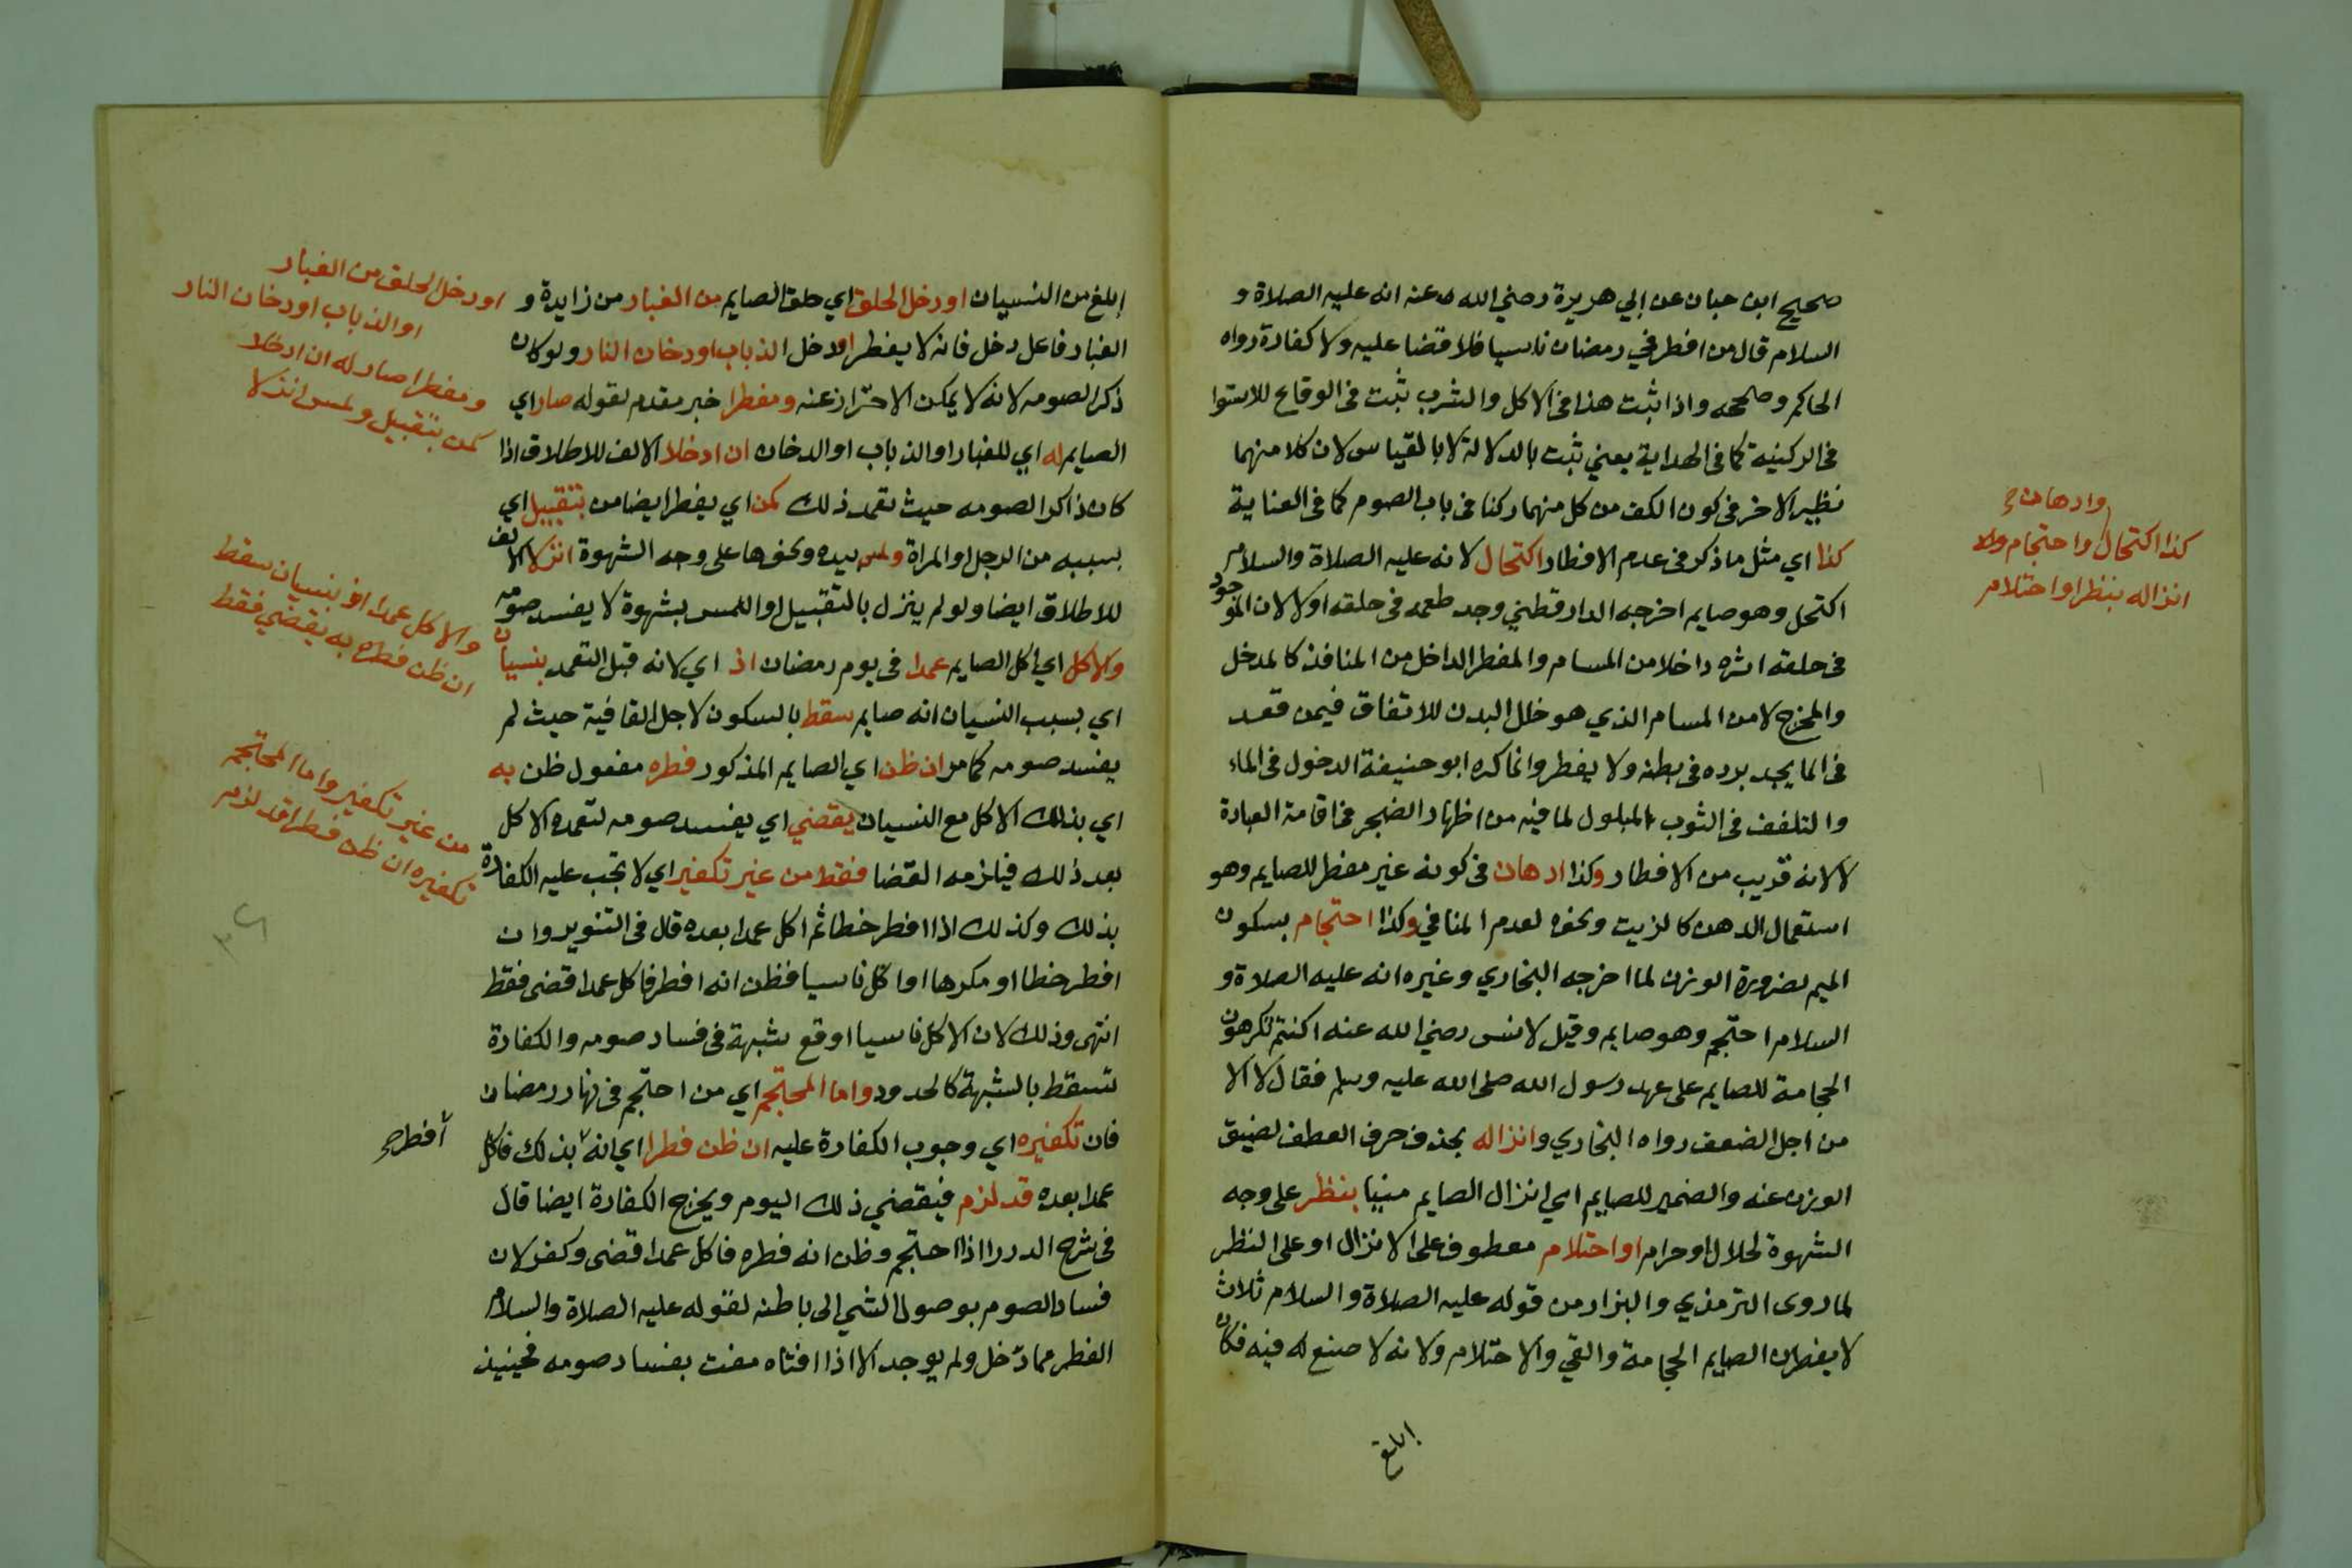 صحيح ابن حبان عن ابي هريرة رضي الله عنه انه عليه الصلاة و
السلام قال من افطر في رمضان ناسيا فلا قضا عليه ولا كفارة رواه
الحاكم وصححه واذا ثبت هذا فى الاكل والشرب ثبت فى الوقاع للاستوا
فى الركنية كما فى الهداية يعني ثبت بالدلالة لا بالقياس لان كلا منهما
نظير الاخر فى كون الكف من كل منهما ركنا فى باب الصوم كما فى العناية
كذا اي مثل ما ذكر فى عدم الافطار اكتحال لانه عليه الصلاة والسلام
اكتحل وهو صايم اخرجه الدارقطني وجد طعمه فى حلقه اولا لان الموجود
فى حلقه اثره داخلا من المسام والمفطر الداخل من المنافذ كالمدخل
والمخرج لا من المسام الذي هو خلل البدن للاتفاق فيمن قعد
فى الما يجد برده فى بطنه ولا يفطر وانما كره ابو حنيفة الدخول فى الماء
والتلفف فى الثوب المبلول لما فيه من اظهار الضجر فى اقامة العبادة
لا لانه قريب من الافطار وكذا ادهان فى كونه غير مفطر للصايم وهو
استعمال الدهن كالزيت ونحوه لعدم المنافي وكذا احتجام بسكون
الميم لضرورة الوزن لما اخرجه البخاري وغيره انه عليه الصلاة و
السلام احتجم وهو صايم وقيل لانس رضي الله عنه اكنتم تكرهون
الحجامة للصايم على عهد رسول الله صلى الله عليه وسلم فقال لا الا
من اجل الضعف رواه البخاري وانزاله بحذف حرف العطف لضيق
الوزن عنه والضمير للصايم اي انزال الصايم منيا بنظر على وجه
الشهوة لحلال او حرام او احتلام معطوف على الانزال او على النظر
لما روى الترمذي والبزار من قوله عليه الصلاة والسلام ثلاث
لا يفطرن الصايم الحجامة والقي والاحتلام ولانه لا صنع له فيه فكان
ابلغ
وادهان صح
كذا اكتحال واحتجام ولا
انزاله بنظر او احتلام
ابلغ من النسيان او دخل الحلق اي حلق الصايم من الغبار من زايدة و
الغبار فاعل دخل فانه لا يفطر او دخل الذباب او دخان النار ولو كان
ذكر الصومه لانه لا يمكن الاحتراز عنه ومفطرا خبر مقدم لقوله صار اي
الصايم له اي للغبار او الذباب او الدخان ان ادخلا الالف للاطلاق اذا
كان ذاكرا لصومه حيث تعمد ذلك كمن اي يفطر ايضا من بتقبيل اي
بسببه من الرجل او المراة ولمس بيده ونحوها على وجه الشهوة انزلا الالف
للاطلاق ايضا ولو لم ينزل بالتقبيل او اللمس بشهوة لا يفسد صومه
والاكل اي اكل الصايم عمدا فى يوم رمضان اذ اي لانه قبل التعمد بنسيان
اي بسبب النسيان انه صايم سقط بالسكون لاجل القافية حيث لم
يفسد صومه كما مر ان ظن اي الصايم المذكور فطره مفعول ظن به
اي بذلك الاكل مع النسيان يقضي اي يفسد صومه لتعمده الاكل
بعد ذلك فيلزمه القضا فقط من غير تكفير اي لا تجب عليه الكفارة
بذلك وكذلك اذا افطر خطا ثم اكل عمدا بعده قال فى التنوير وان
افطر خطا او مكرها او اكل ناسيا فظن انه افطر فاكل عمدا قضى فقط
انتهى وذلك لان الاكل ناسيا اوقع شبهة فى فساد صومه والكفارة
تسقط بالشبهة كالحدود واما المحتجم اي من احتجم فى نهار رمضان
فان تكفيره اي وجوب الكفارة عليه ان ظن فطرا اي انه بذلك فاكل
عمدا بعده قد لزم فيقضي ذلك اليوم ويخرج الكفارة ايضا قال
فى شرح الدرر اذا احتجم وظن انه فطره فاكل عمدا قضى وكفر لان
فساد الصوم بوصول الشي الى باطنه لقوله عليه الصلاة والسلام
الفطر مما دخل ولم يوجد الا اذا افتاه مفت بفساد صومه فحينيذ
او دخل الحلق من الغبار
او الذباب او دخان النار
ومفطرا صار له ان ادخلا
كمن بتقبيل ولمس انزلا
والاكل عمدا اذ بنسيان سقط
ان ظن فطره به يقضي فقط
من غير تكفير واما المحتجم
تكفيره ان ظن فطرا قد لزم
افطر صح